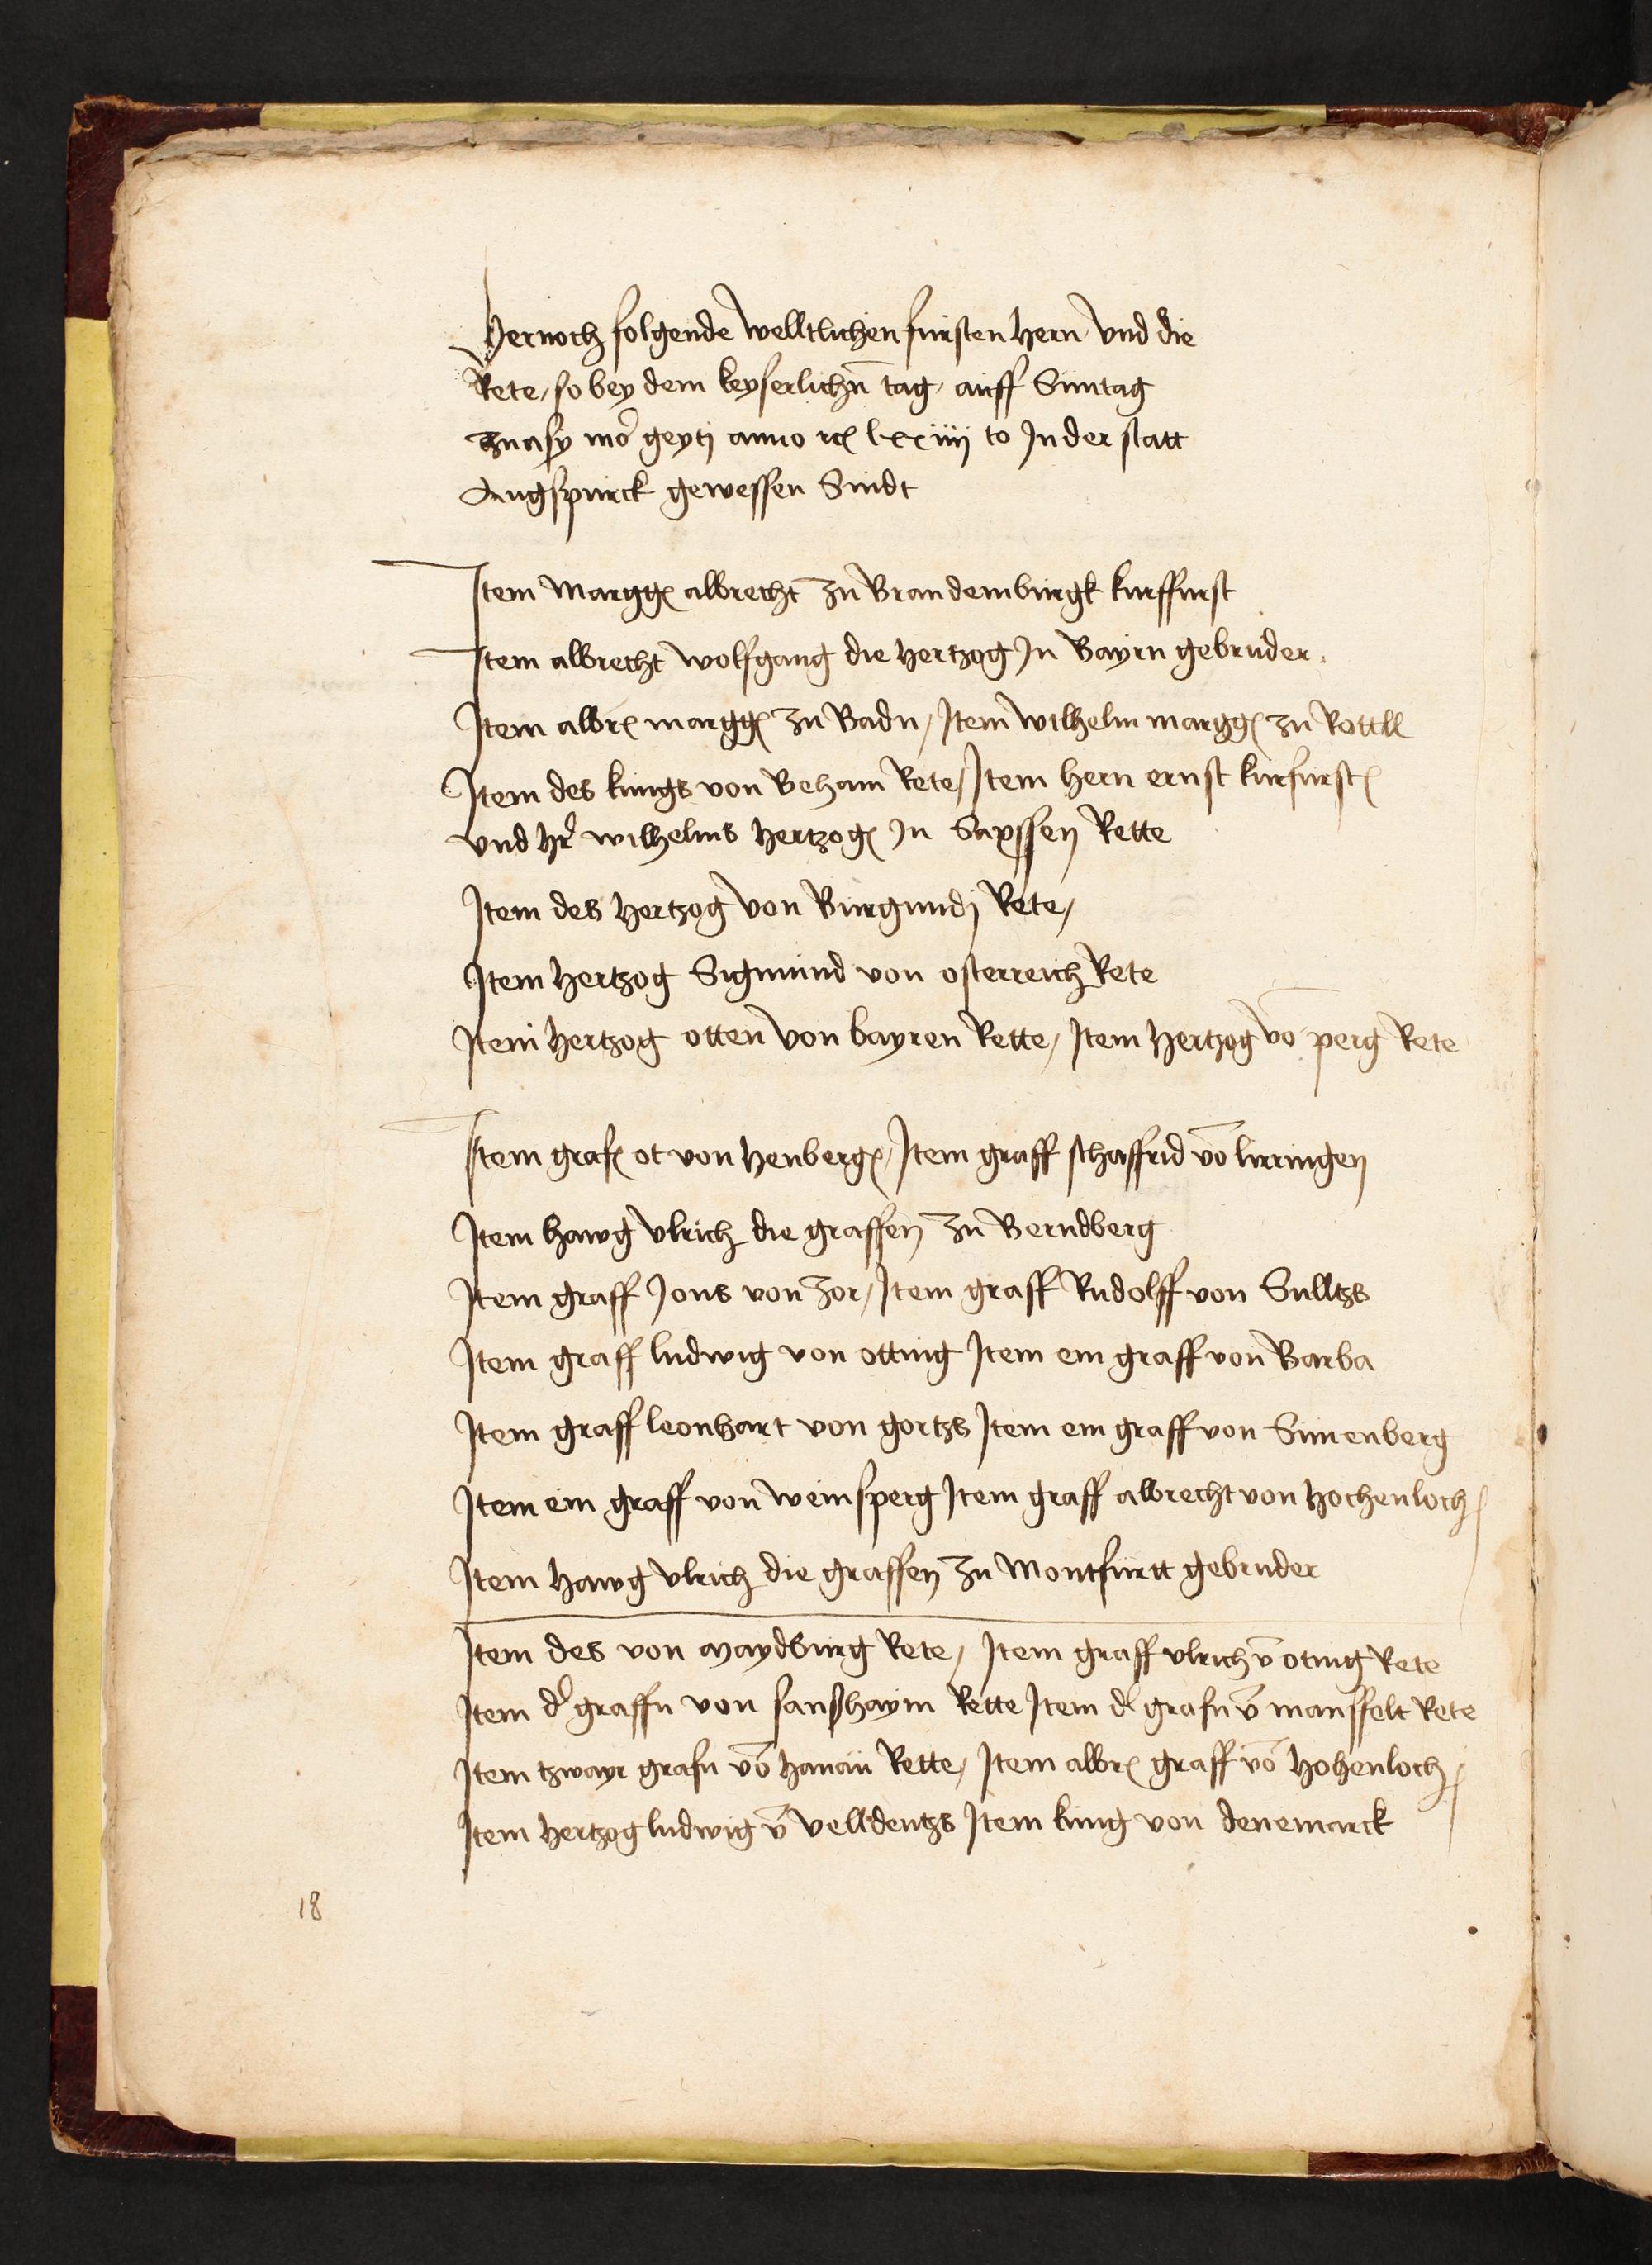 Hernoch folgende welltlichen fursten hern und die
Rete, so bey dem keyserlichn̄ tag, auff Suntag
anno lxxiiij to Jn der statt
Augspurck gewessen Sindt
Item Margg albrecht zu Brandemburgk kurffurst
Item albrecht wolfgang die hertzog Jn Bayrn gebruder.
Item albr margg zu Badn, Item wilhelm margg zu Rottll
Item des kungs von Beham Rete, Item hern ernst kurfurst
und hr wilhelms hertzog Jn Sayssen Rette
Item des hertzog von Burgundj Rete,
Item hertzog Sigmund von osterreich Rete
Item hertzog otten von bayren Rette, Item hertzog vō perg Rete
Item graf ot von henberg, Item graff schaffrid vō
Item hawg ulrich die graffen zu Berndberg
Item graff Jons von zor, Item graff Rudolff von Sulltzs
Item graff ludwig von otting Item ein graff von Barba
Item graff leonhart von gortzs Item ein graff von Sunenberg
Item ein graff von weinsperg Item graff albrecht von hochenloch
Item hawg ulrich die graffen zu Montfurtt gebruder
Item des von maydburg Rete, Item graff ulrich v̄ oting Rete
Item d' graffn von Rette Item d' grafn v̄ mansfelt Rete
Item tzwayr grafn vō hanau Rette, Item albr graff vō hohenloch
Item hertzog ludwig v̄ velldentzs Item kung von denemarck
18